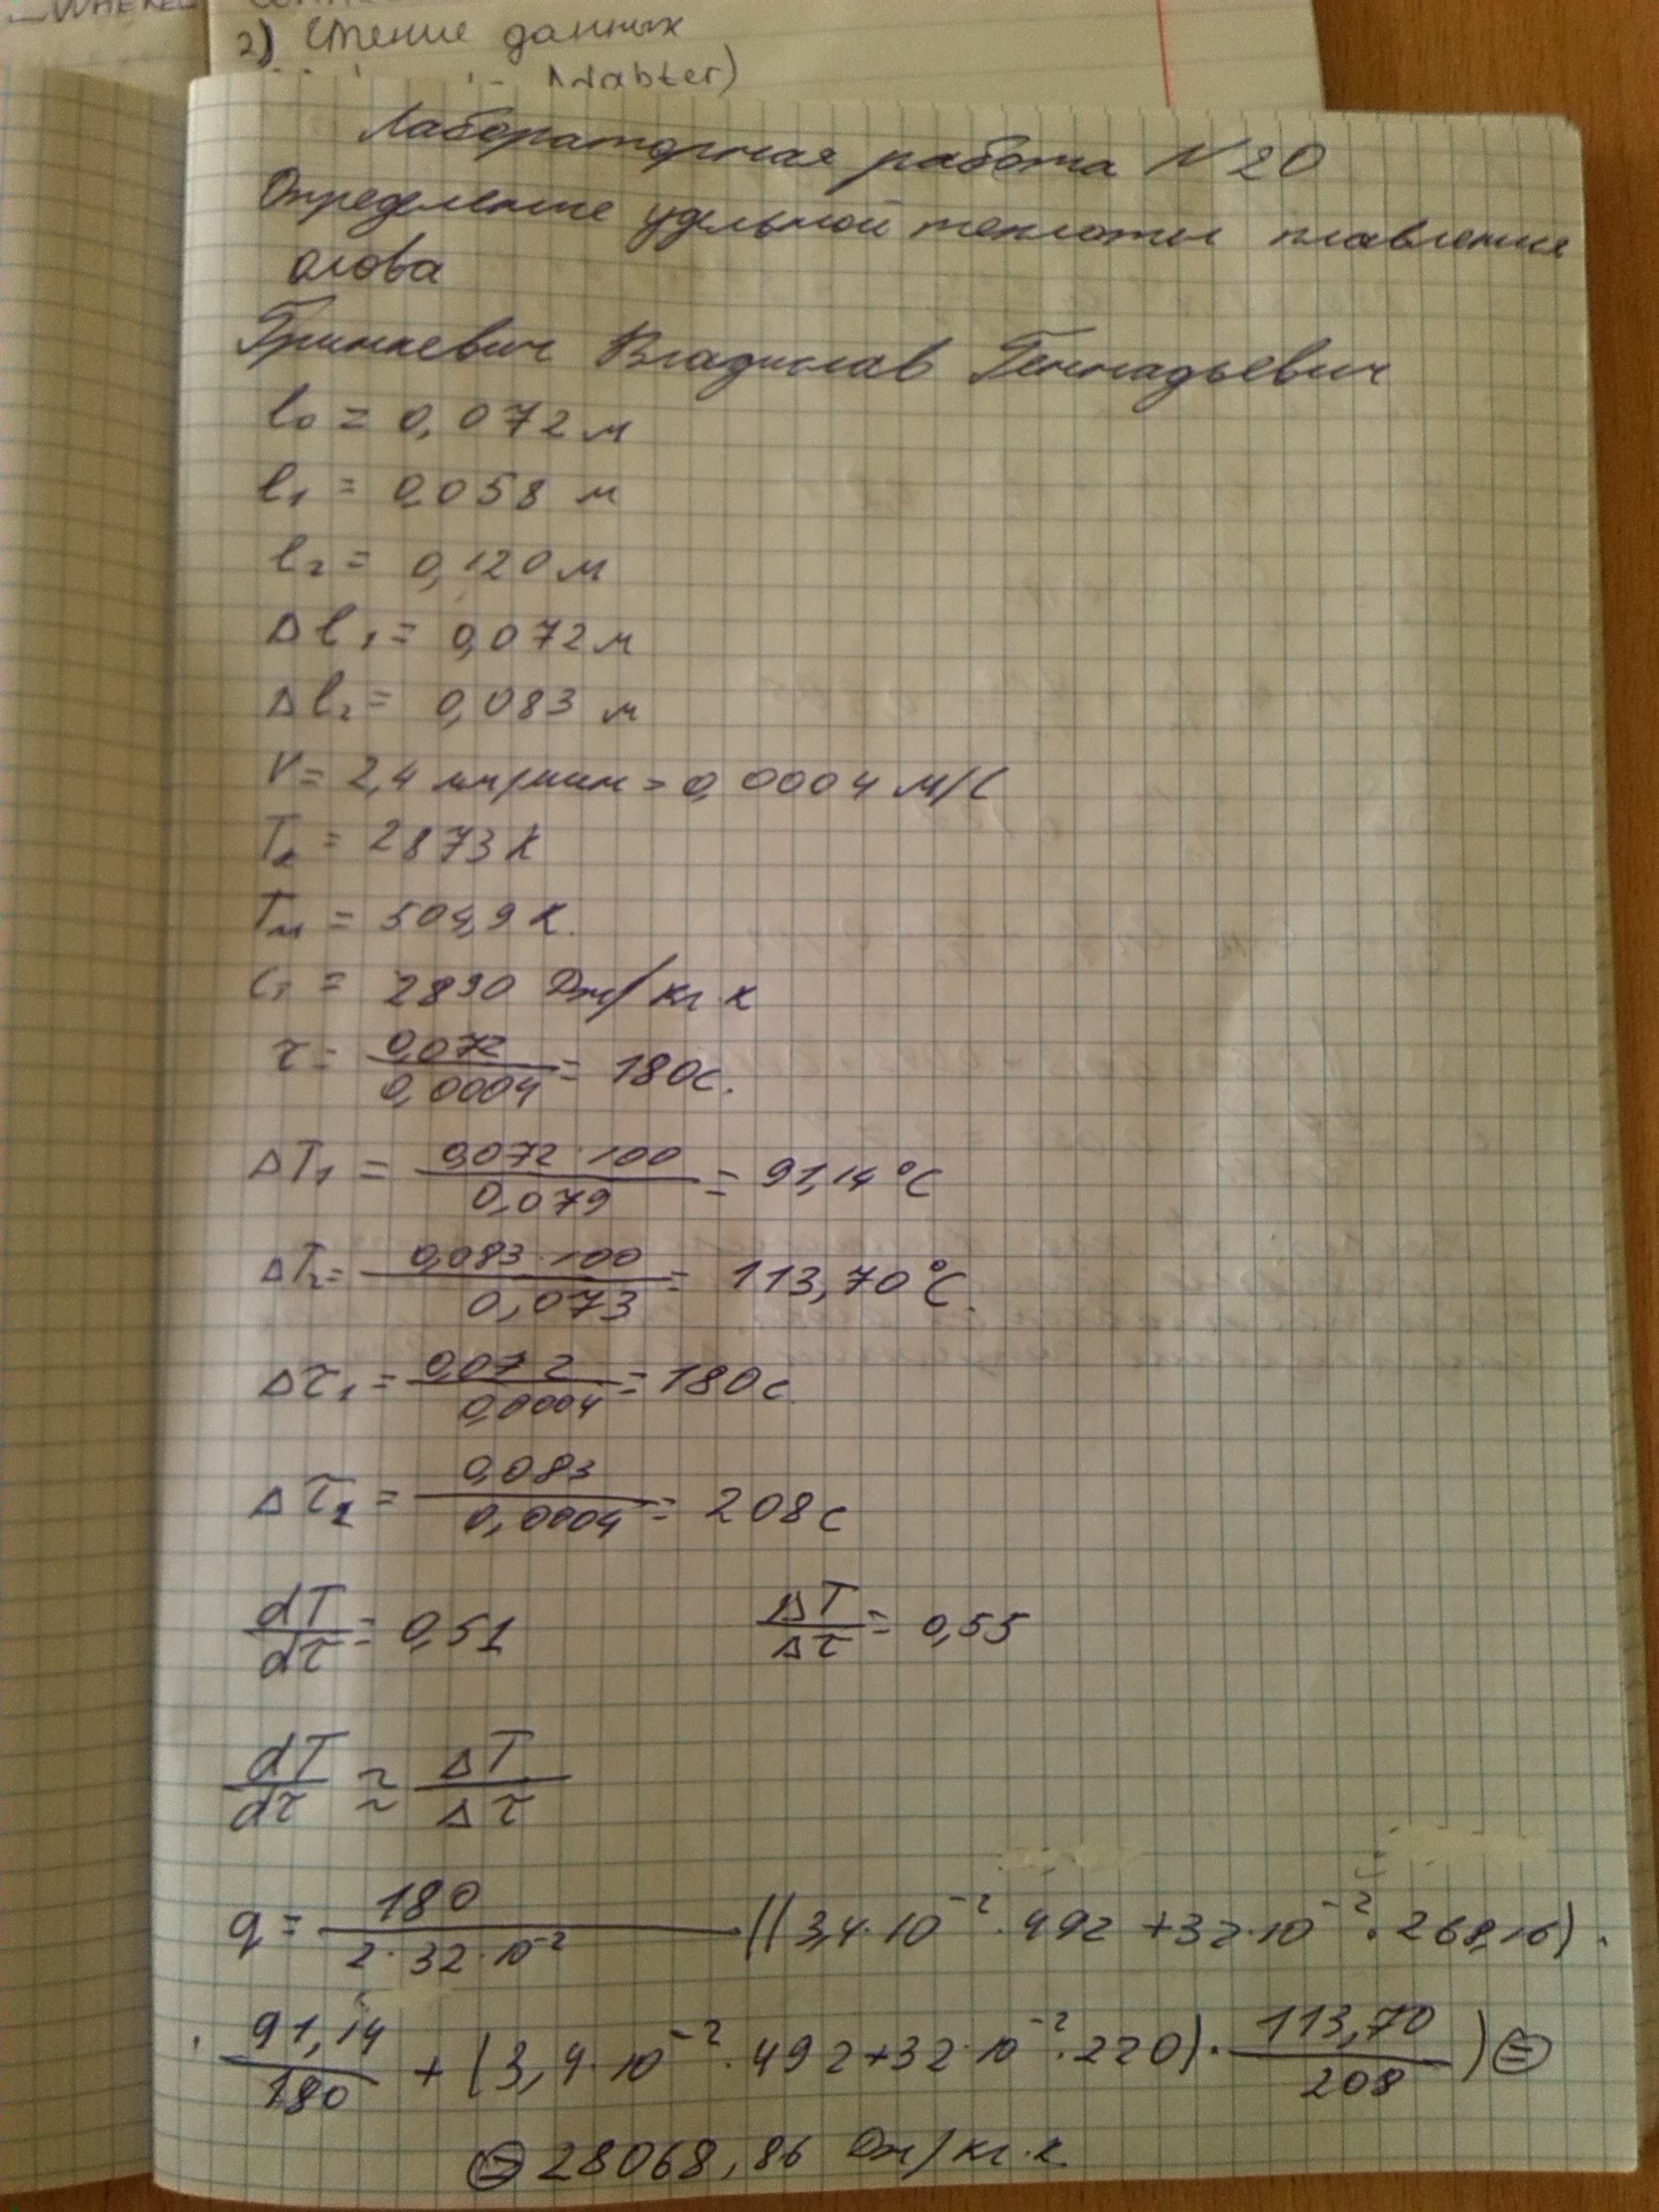 2) Чтение данных
Лабораторная работа N 20
Определение удельной теплоты плавления
олова
Гринкевич Владислав Геннадьевич
l₀ = 0,072 м
l₁ = 0,058 м
l₂ = 0,120 м
Δl₁ = 0,072 м
Δl₂ = 0,083 м
V = 2,4 мм/мин = 0,0004 м/с
Tₖ = 2873 К
Tₘ = 504,9 К.
= 2890 Дж/кг·К
τ = 0,072 / 0,0004 = 180 с.
ΔT₁ = 0,072 · 100 / 0,079 = 91,14 °C
ΔT₂ = 0,083 · 100 / 0,073 = 113,70 °C.
Δτ₁ = 0,072 / 0,0004 = 180 с.
Δτ₂ = 0,083 / 0,0004 = 208 с
dT/dτ = 0,51 ΔT/Δτ = 0,55
dT/dτ ≈ ΔT/Δτ
q = 180 / 2·32·10⁻² ((3,4·10⁻²·492 + 32·10⁻²·268,16) ·
· 91,14/180 + (3,4·10⁻²·492 + 32·10⁻²·220) · 113,70/208 ) =
= 28068,86 Дж/кг·К